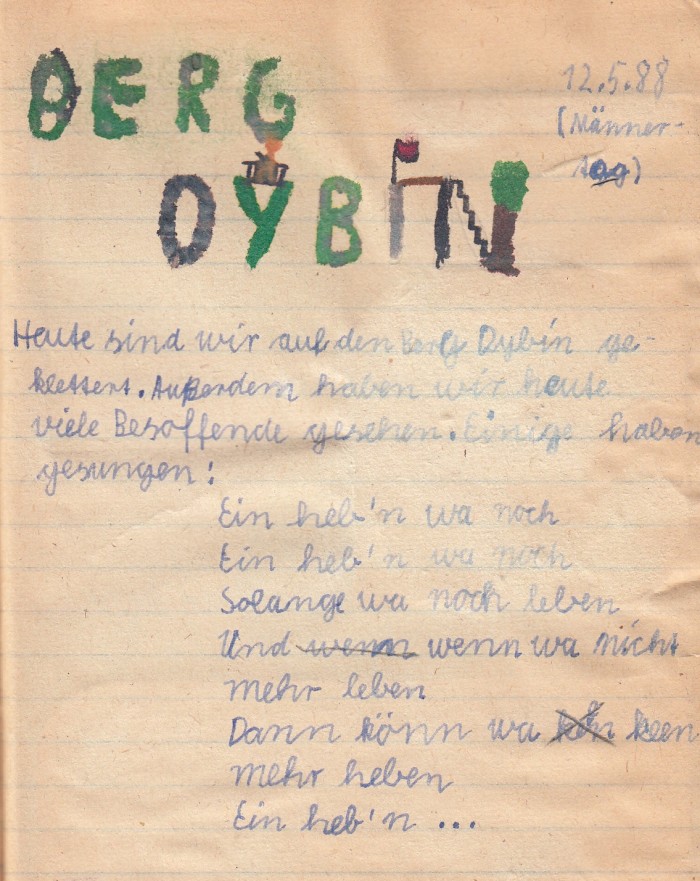 BERG
OYBIN
12.5.88
(Männer-
tag)
Heute sind wir auf den Berg Oybin ge-
klettert. Außerdem haben wir heute
viele Besoffende gesehen. Einige haben
gesungen:
Ein heb'n wa noch
Ein heb'n wa noch
Solange wa noch leben
Und wenn wenn wa nicht
mehr leben
Dann könn wa keen
mehr heben
Ein heb'n ...